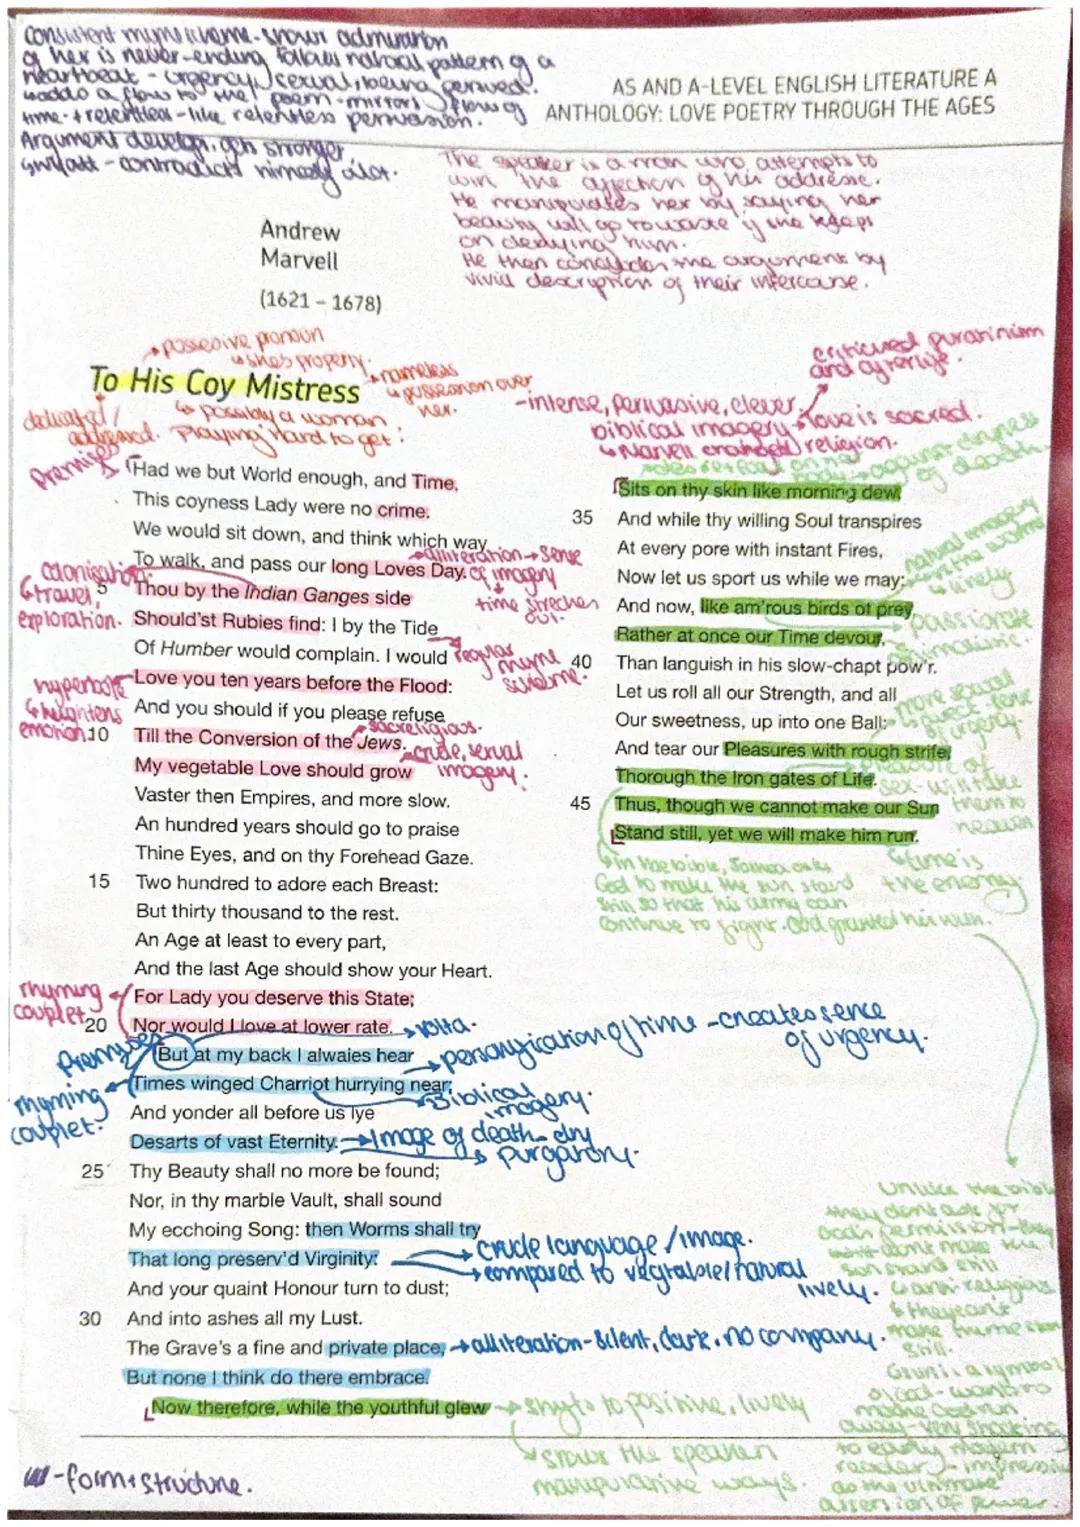 consistent rhyme scheme - shows admiration
of her is never-ending, follows natural pattern of a
heartbeat - urgency, sexual, being
adds a flow to the poem - mirrors flow of
time. + relentless - like relentless persuasion.
Argument develops, gets stronger
contradicts himself alot.
AS AND A-LEVEL ENGLISH LITERATURE A
ANTHOLOGY: LOVE POETRY THROUGH THE AGES
The speaker is a man who attempts to
win the affection of his addresse.
He manipulates her by saying her
beauty will go to waste if she keeps
on denying him.
He then concludes the argument by
vivid description of their intercourse.
Andrew
Marvell
(1621 – 1678)
possesive pronoun
↳ shes property.
To His Coy Mistress
nameless
↳ possession over
her.
dedicated /
addressed.
↳ possibly a woman
playing 'hard to get'
criticised puritanism
and
-intense, persuasive, clever.
biblical imagery → love is sacred.
↳ Marvell religion.
Premise
Had we but World enough, and Time,
This coyness Lady were no crime.
We would sit down, and think which way
To walk, and pass our long Loves Day.
alliteration → sense
of imagery
time streches
out.
colonisation
↳ travel,
exploration.
5 Thou by the Indian Ganges side
Should'st Rubies find: I by the Tide
Of Humber would complain. I would
regular
rhyme
scheme.
hyperbole
↳ heightens
emotion.
Love you ten years before the Flood:
And you should if you please refuse
10 Till the Conversion of the Jews.
sacreligious.
My vegetable Love should grow
crude, sexual
imagery.
Vaster then Empires, and more slow.
An hundred years should go to praise
Thine Eyes, and on thy Forehead Gaze.
15 Two hundred to adore each Breast:
But thirty thousand to the rest.
An Age at least to every part,
And the last Age should show your Heart.
rhyming
couplet
For Lady you deserve this State;
20 Nor would I love at lower rate.
→ volta.
But at my back I alwaies hear
→ personification of time - creates sence
of urgency.
rhyming
couplet.
Times winged Charriot hurrying near:
Biblical
imagery.
And yonder all before us lye
Desarts of vast Eternity.
→ Image of death - dry
↳ purgatory.
25 Thy Beauty shall no more be found;
Nor, in thy marble Vault, shall sound
My ecchoing Song: then Worms shall try
That long preserv'd Virginity:
→ crude language / image.
→ compared to vegtable / natural
lively.
And your quaint Honour turn to dust;
30 And into ashes all my Lust.
The Grave's a fine and private place,
→ alliteration - silent, dark, no company.
But none I think do there embrace.
Now therefore, while the youthful glew
→ shifts to positive, lively
↳ shows the speaker
manipulative ways.
Sits on thy skin like morning dew,
35 And while thy willing Soul transpires
At every pore with instant Fires,
Now let us sport us while we may;
natural imagery
↳ lively
And now, like am'rous birds of prey,
→ passionate
animalistic.
Rather at once our Time devour,
40 Than languish in his slow-chapt pow'r.
Let us roll all our Strength, and all
Our sweetness, up into one Ball:
more sexual
of urgency.
And tear our Pleasures with rough strife,
Thorough the Iron gates of Life.
pleasure of
sex - will take
them to
heaven
45 Thus, though we cannot make our Sun
Stand still, yet we will make him run.
↳ in the bible, asks
God to make the sun stand
still so that his army can
continue to fight. God granted his wish.
↳ time is
the enemy.
Unlike the bible
they dont ask for
gods permission - they
sun stand still
↳ anti religious
& they can't
make time stand
still.
Sun is a symbol
of God - wants to
make God run
away - very shocking
to early modern
reader
as the ultimate
assertion of power.
- form + structure.